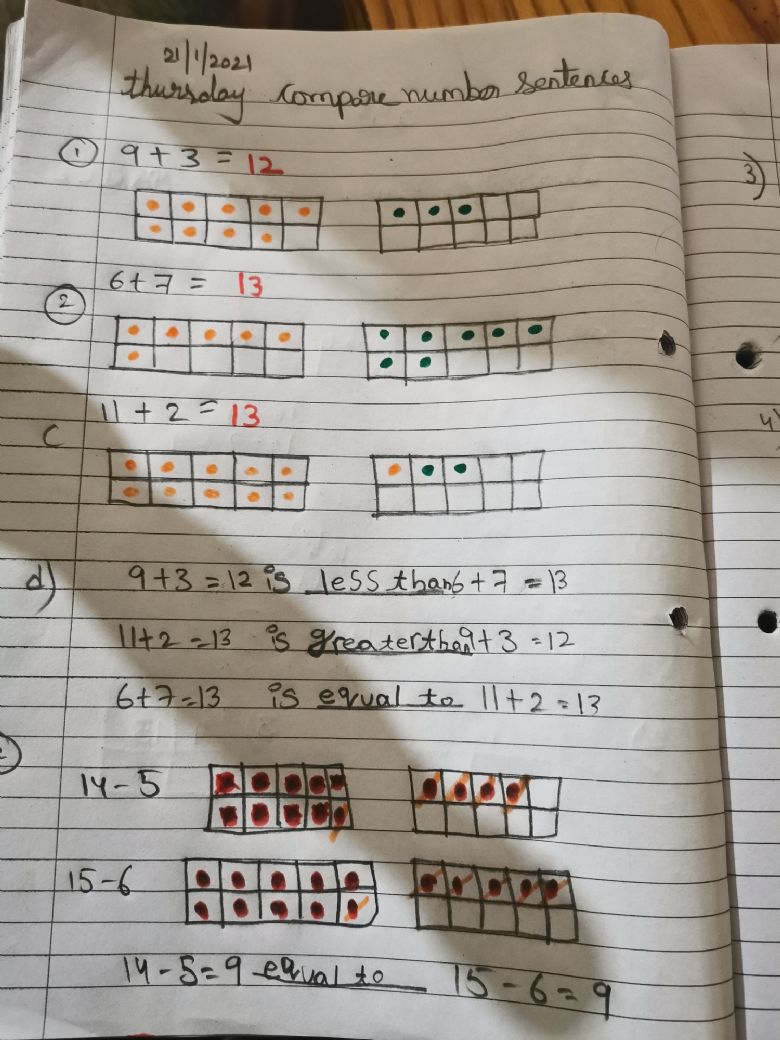 21/1/2021
thursday compare number sentences
1 9 + 3 = 12
2 6 + 7 = 13
c 11 + 2 = 13
d) 9 + 3 = 12 is less than 6 + 7 = 13
11 + 2 = 13 is greater than 9 + 3 = 12
6 + 7 = 13 is equal to 11 + 2 = 13
14 - 5
15 - 6
14 - 5 = 9 equal to 15 - 6 = 9
3)
4)